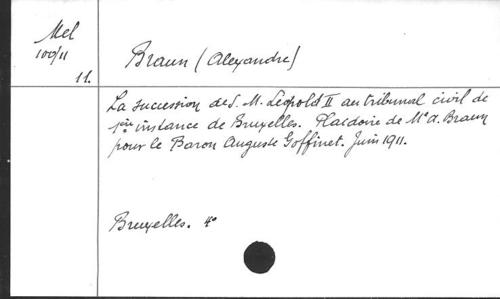 Mel
100/11
11.
Braun (Alexandre)
La succession de S. M. Léopold II au tribunal civil de
1ère instance de Bruxelles. Plaidoirie de Me A. Braun
pour le Baron Auguste Goffinet. Juin 1911.
Bruxelles. 4°